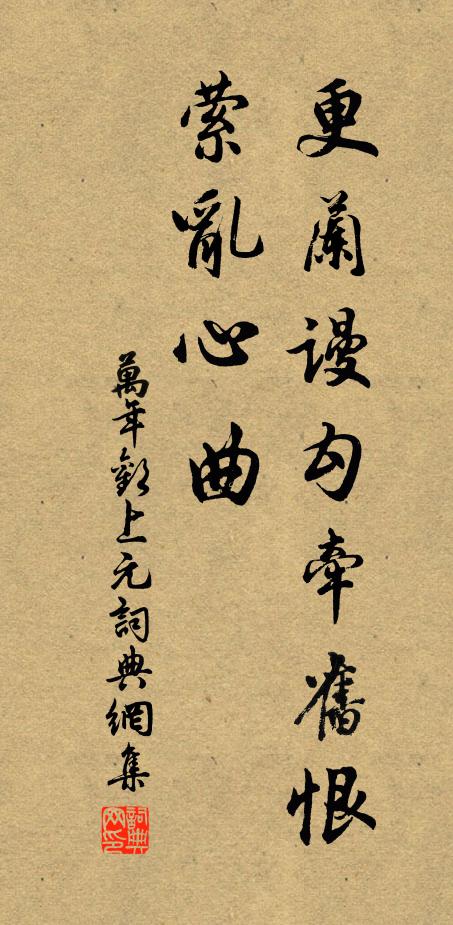 更蘭謾勾牽舊恨
萦亂心曲
萬年歡上元詞典網集
詞典网印